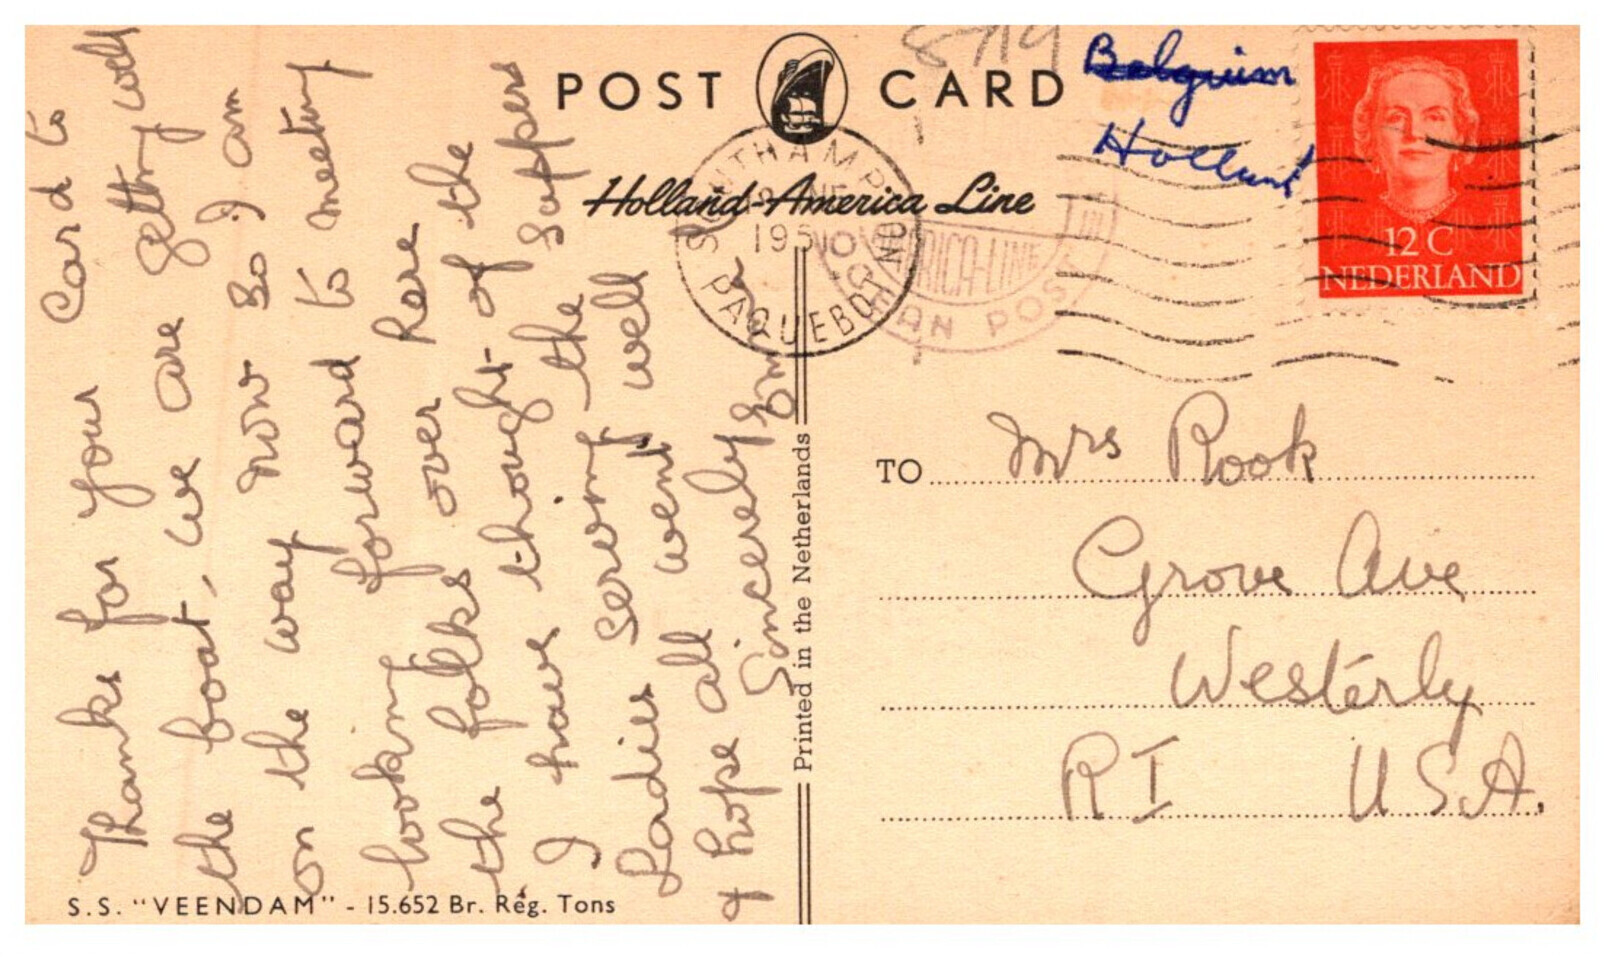 POST CARD
8719
Belgium
Holland
Holland-America Line
SOUTHAMPTON
195
PAQUEBOT
RICA-LINE
OCEAN POST
12 C
NEDERLAND
Thanks for your Card to
the boat, we are getting well
on the way now so I am
looking forward to meeting
the folks over here
I have thought of the
Ladies serving the Suppers
& hope all went well
Sincerely Emma
Printed in the Netherlands
TO Mrs Rook
Grove Ave
Westerly
RI USA.
S.S. "VEENDAM" - 15.652 Br. Reg. Tons